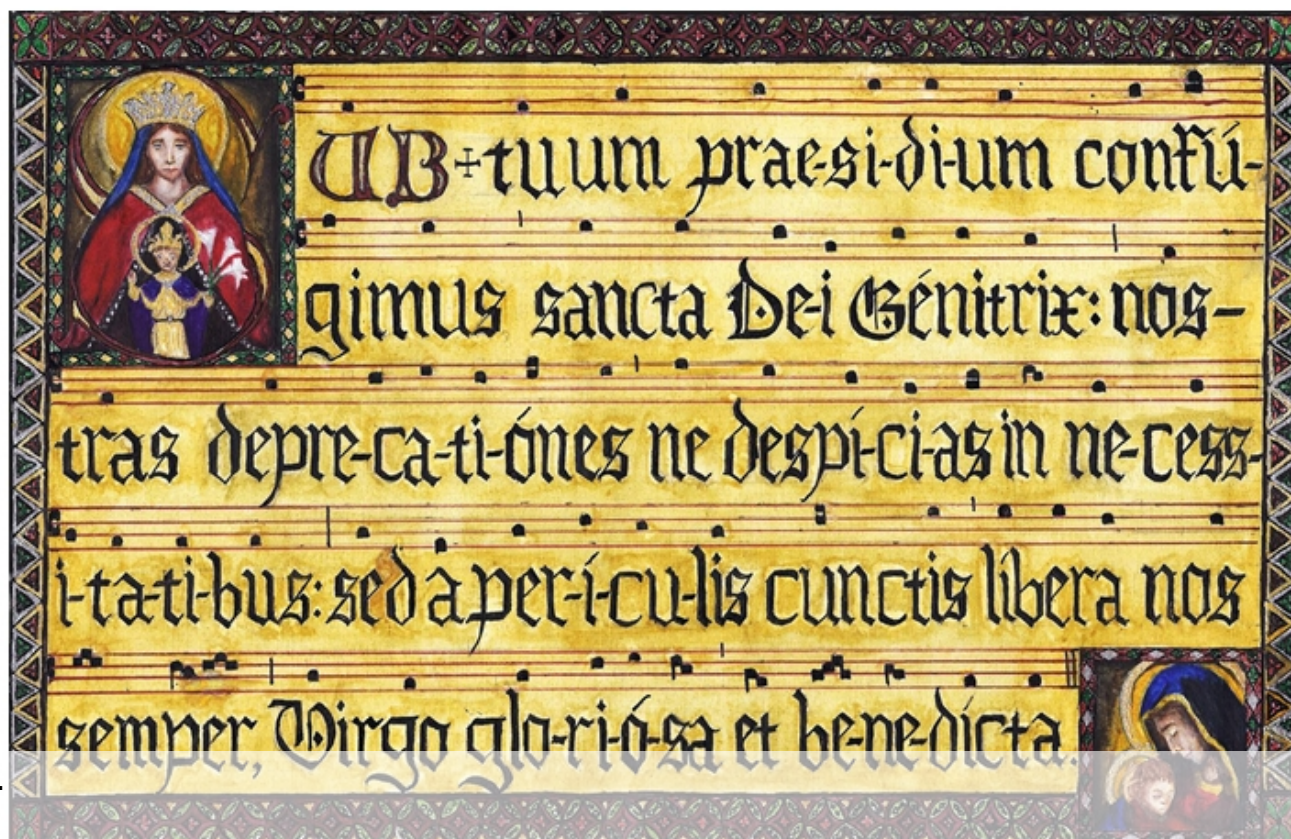 UB+tuum prae-si-di-um confú-
gimus sancta De-i Génitrix: nos-
tras depre-ca-ti-ónes ne despí-ci-as in ne-cess-
i-ta-ti-bus: sed a per-í-cu-lis cunctis libera nos
semper, Virgo glo-ri-ó-sa et be-ne-dícta.